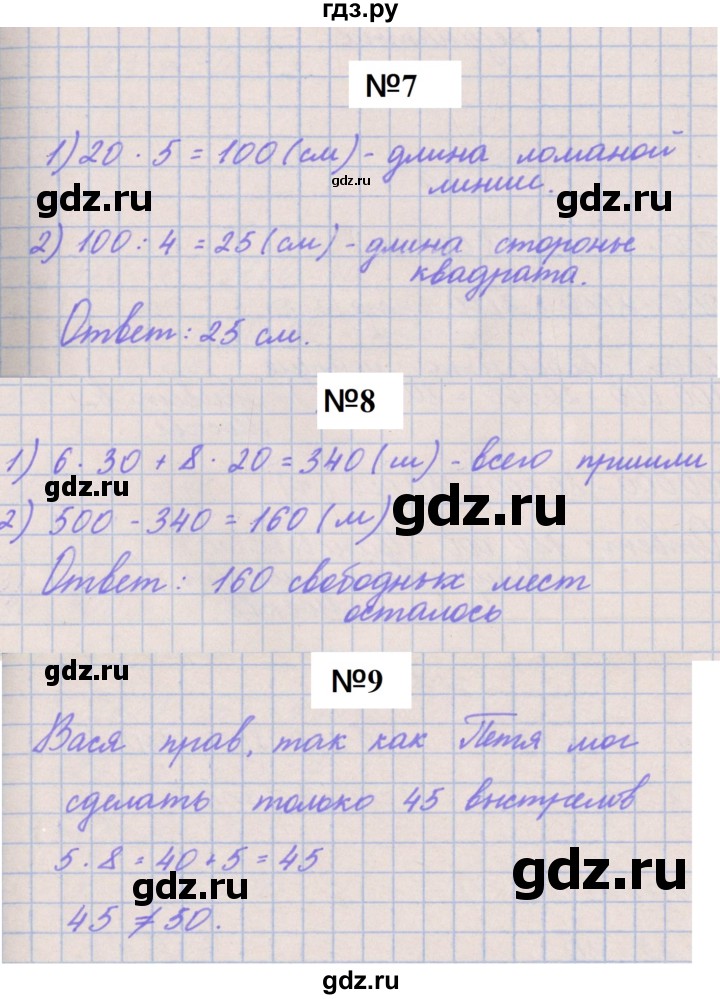 гдз.ру
№7
1) 20 · 5 = 100 (см) - длина ломаной
gdz.ru
линии.
gdz.ru
gdz.ru
2) 100 : 4 = 25 (см) - длина стороны
квадрата.
Ответ: 25 см.
gdz.ru
№8
1) 6 · 30 + 8 · 20 = 340 (м) - всего пришли
gdz.ru
gdz.ru
2) 500 - 340 = 160 (м)
Ответ: 160 свободных мест
осталось
gdz.ru
gdz.ru
№9
Вася прав, так как Петя мог
сделать только 45 выстрелов
5 · 8 = 40 + 5 = 45
gdz.ru
gdz.ru
45 ≠ 50.
gdz.ru